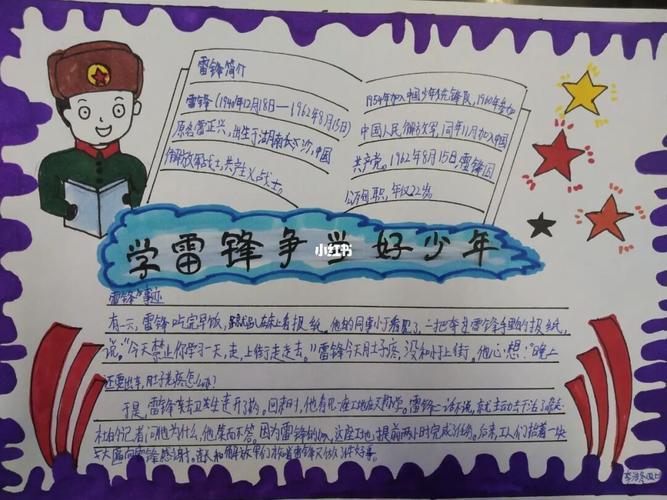 雷锋简介
雷锋(1940年12月18日——1962年8月15日)
原名雷正兴,出生于湖南长沙,中国
解放军战士,共产主义战士。
1954年加入中国少年先锋队,1960年参加
中国人民解放军,同年11月加入中国
共产党。1962年8月15日,雷锋因
公殉职,年仅22岁。
学雷锋争当好少年
小红书
雷锋事迹
有一天,雷锋吃完早饭,就坐在床上看报纸。他的同事小于看见了,一把夺过雷锋手里的报纸,
说:“今天禁止你学习一天,走,上街走走去。”雷锋今天肚子疼,没和小于上街。他心想:“晚上
还要出车,肚子老疼怎么办?
于是,雷锋来到卫生连开了药。回来时,他看见一座工地在
他为什么,他笑而不答。因为雷锋的 这座工地提前两小时完成了任务。后来,工人们拿着一块
大匾向雷锋感谢。